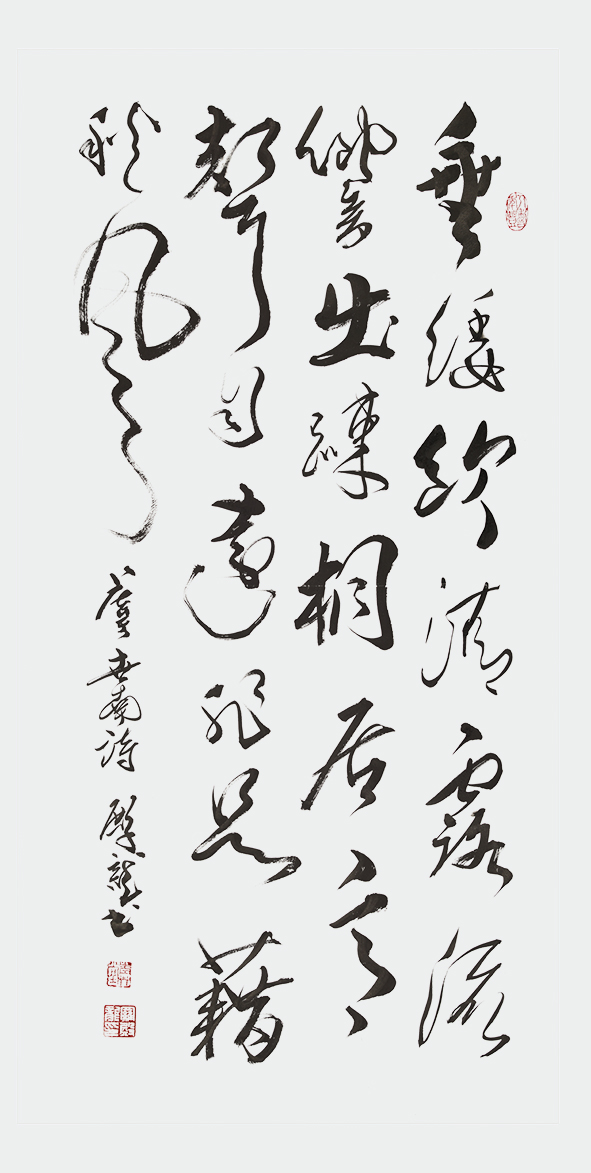 垂緌飲清露流
響出疎桐居高
聲自遠非是藉
秋風 虞世南詩 龍書